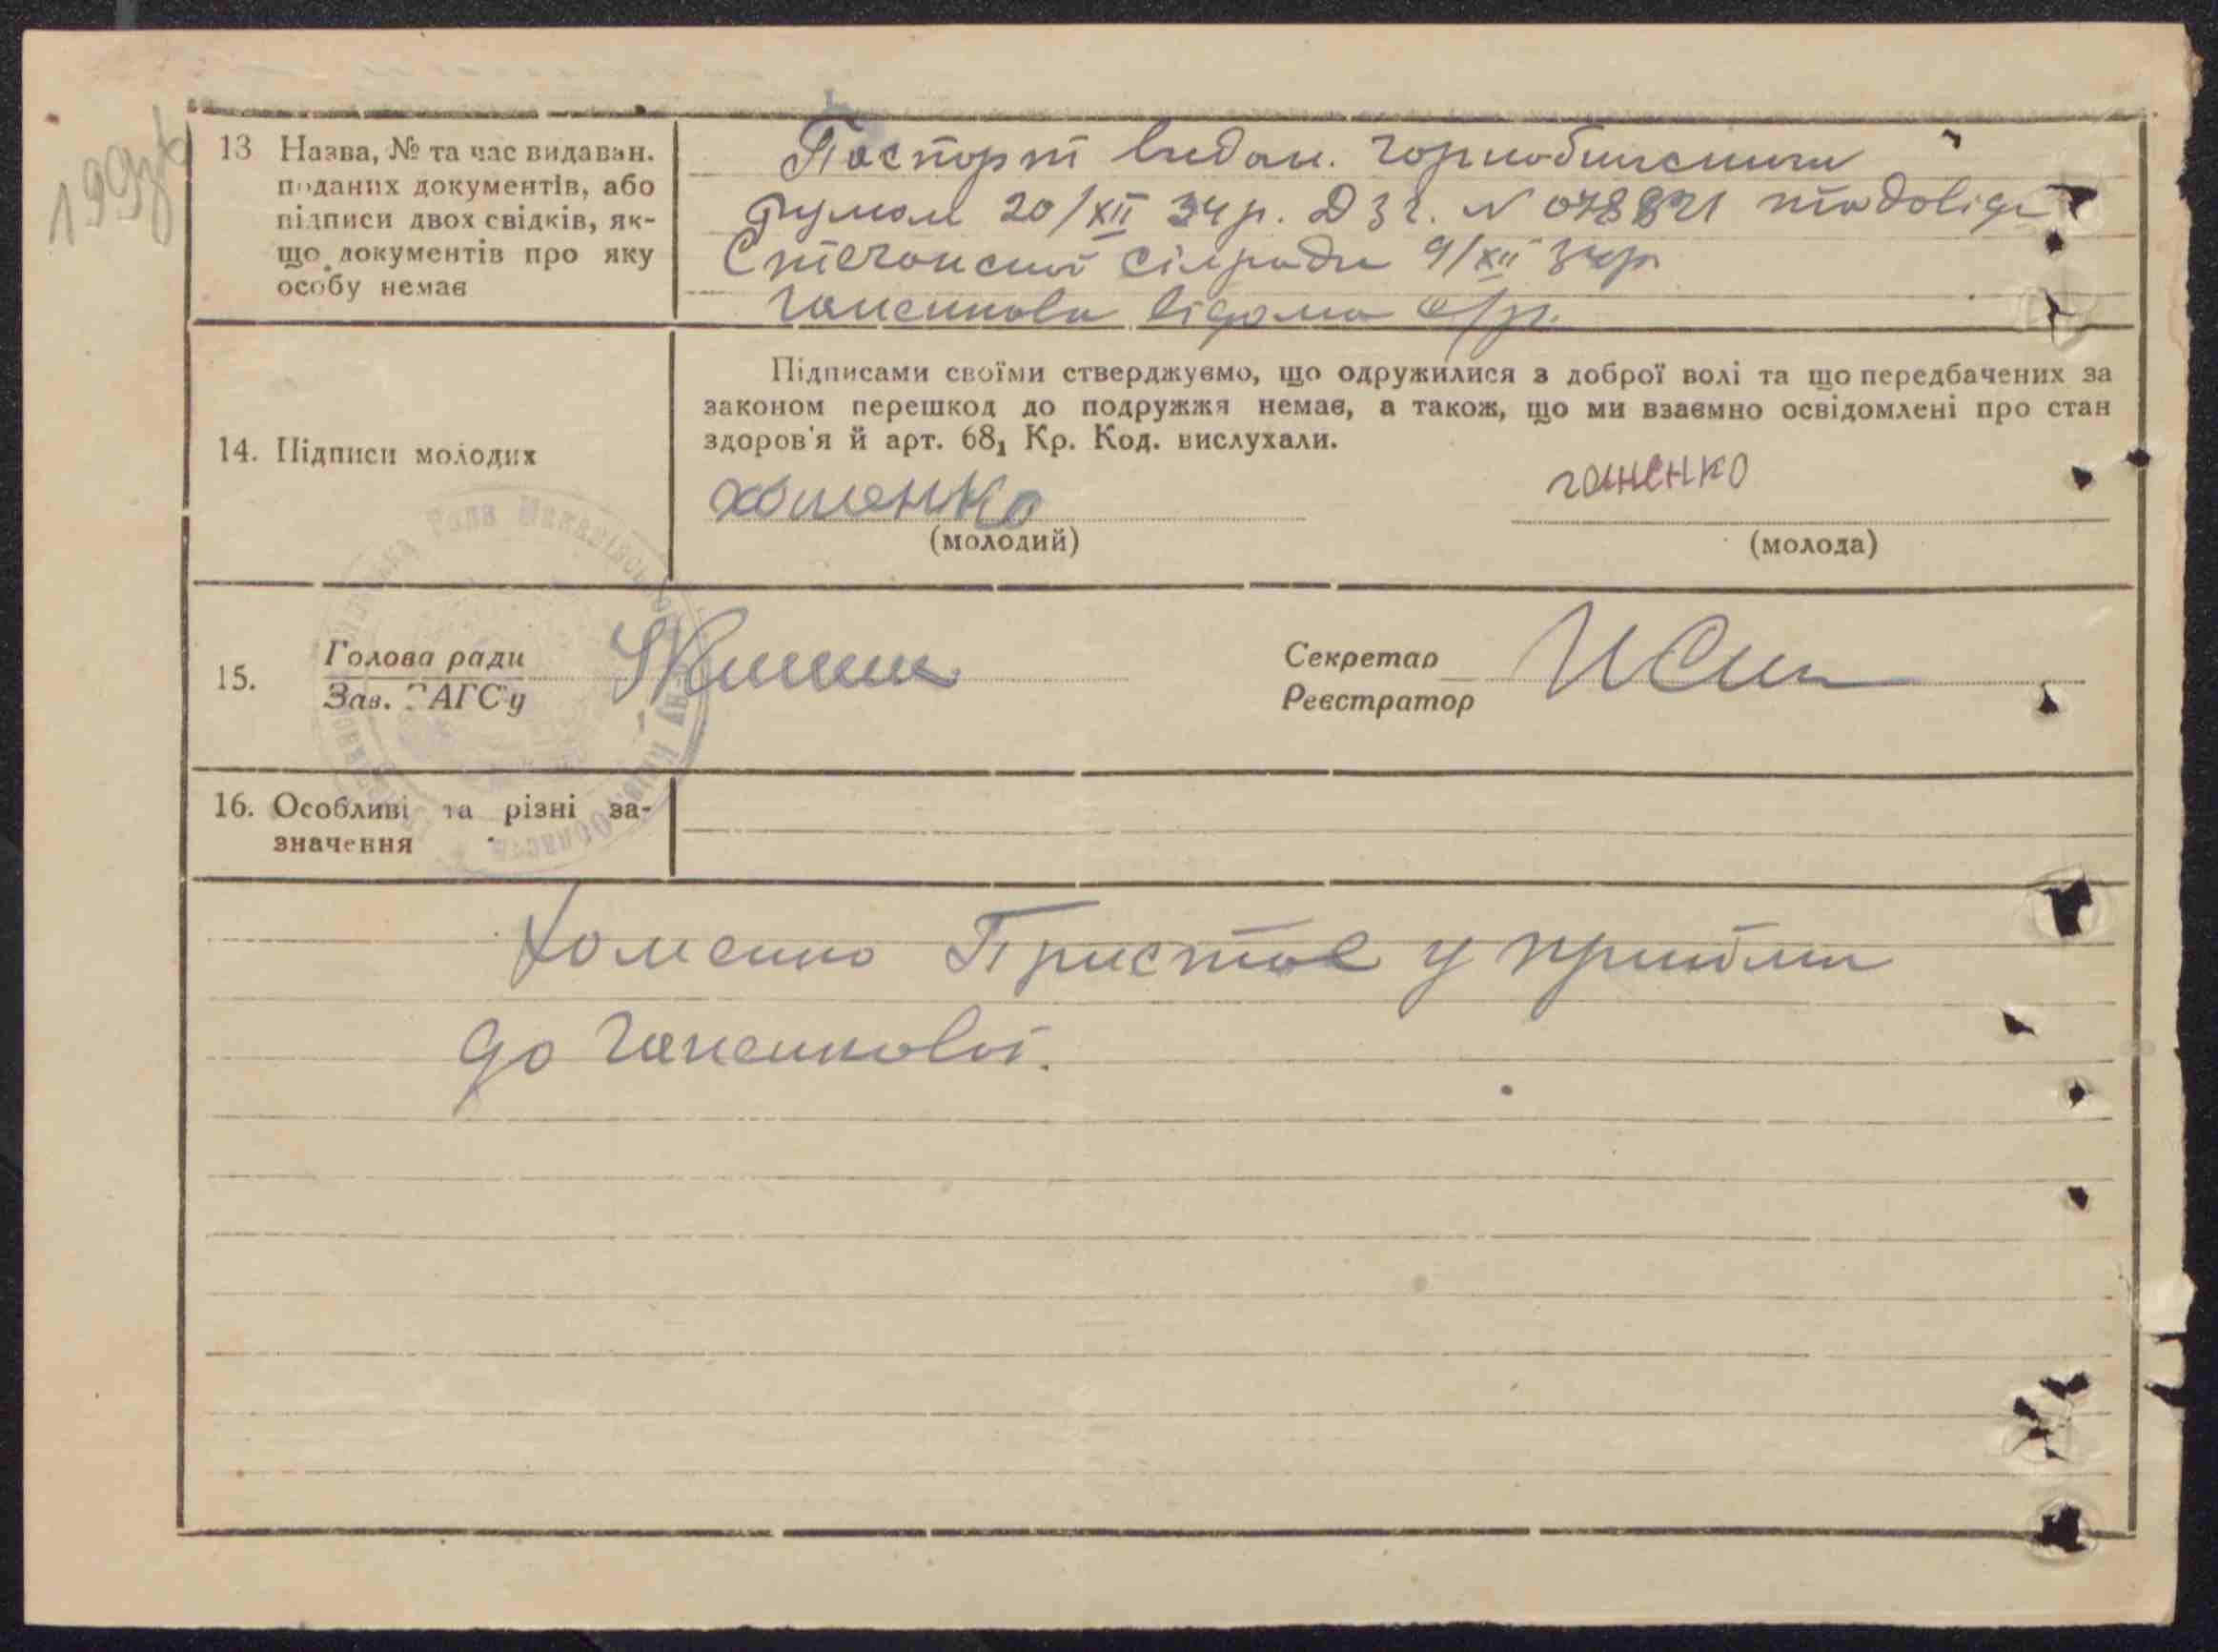 199зв
13 Назва, № та час видаван.
поданих документів, або
підписи двох свідків, як-
що документів про яку
особу немає
Паспорт видан. Чорнобильским
РУМом 20/XII 34 р. ДЗг. N 048821 та довідц
Стечанської сілради 9/XII 34р
Ганенкова відома с/р.
14. Підписи молодих
Підписами своїми стверджуємо, що одружилися з доброї волі та що передбачених за
законом перешкод до подружжя немає, а також, що ми взаємно освідомлені про стан
здоров'я й арт. 68₁ Кр. Код. вислухали.
хоменко
(молодий)
ганенко
(молода)
15.
Голова ради
Зав. ЗАГС'у
Секретар
Реєстратор
16. Особливі та різні за-
значення
Хоменко Пристає у прийми
до Ганенкової.